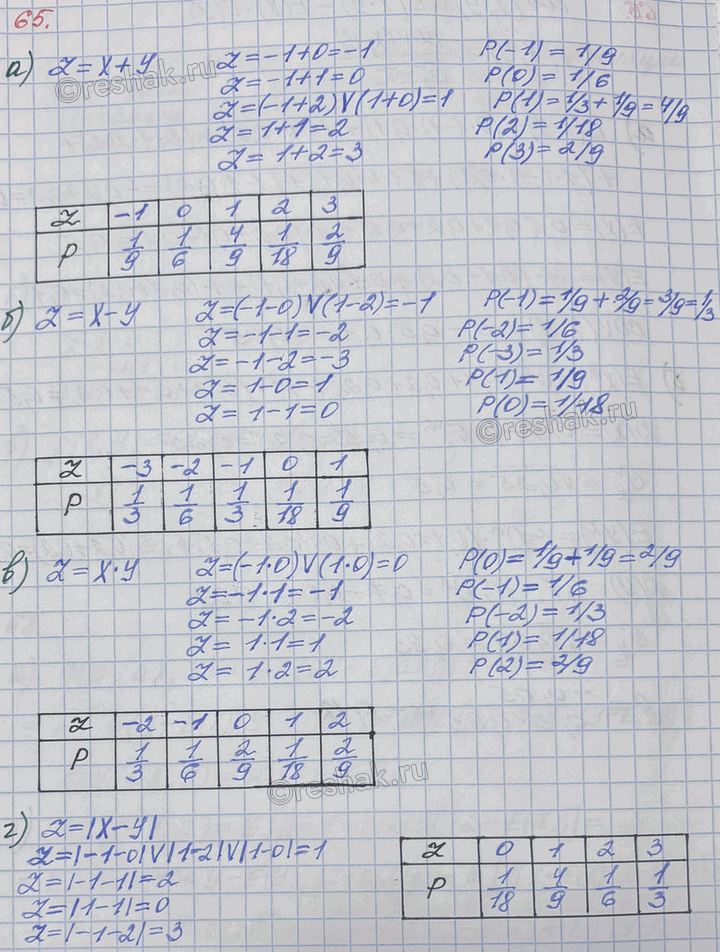 65.
а) Z = X + Y Z = -1+0 = -1 P(-1) = 1/9
Z = -1+1 = 0 P(0) = 1/6
Z = (-1+2) V (1+0) = 1 P(1) = 1/3 + 1/9 = 4/9
Z = 1+1 = 2 P(2) = 1/18
Z = 1+2 = 3 P(3) = 2/9
Z -1 0 1 2 3
P 1/9 1/6 4/9 1/18 2/9
б) Z = X - Y Z = (-1-0) V (1-2) = -1 P(-1) = 1/9 + 2/9 = 3/9 = 1/3
Z = -1-1 = -2 P(-2) = 1/6
Z = -1-2 = -3 P(-3) = 1/3
Z = 1-0 = 1 P(1) = 1/9
Z = 1-1 = 0 P(0) = 1/18
Z -3 -2 -1 0 1
P 1/3 1/6 1/3 1/18 1/9
в) Z = X·Y Z = (-1·0) V (1·0) = 0 P(0) = 1/9 + 1/9 = 2/9
Z = -1·1 = -1 P(-1) = 1/6
Z = -1·2 = -2 P(-2) = 1/3
Z = 1·1 = 1 P(1) = 1/18
Z = 1·2 = 2 P(2) = 2/9
Z -2 -1 0 1 2
P 1/3 1/6 2/9 1/18 2/9
г) Z = |X - Y|
Z = |-1-0| V |1-2| V |1-0| = 1
Z = |-1-1| = 2
Z = |1-1| = 0
Z = |-1-2| = 3
Z 0 1 2 3
P 1/18 4/9 1/6 1/3
©reshak.ru
©reshak.ru
©reshak.ru